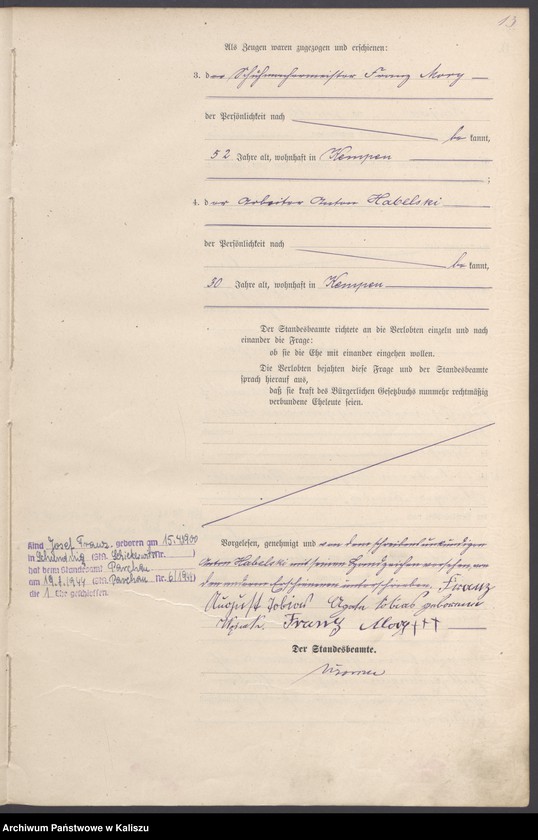 13
Als Zeugen waren zugezogen und erschienen:
3. der Schuhmachermeister Franz Mory
der Persönlichkeit nach
bekannt,
52 Jahre alt, wohnhaft in Kempen
;
4. der Arbeiter Anton Habelski
der Persönlichkeit nach
bekannt,
30 Jahre alt, wohnhaft in Kempen
Der Standesbeamte richtete an die Verlobten einzeln und nach
einander die Frage:
ob sie die Ehe mit einander eingehen wollen.
Die Verlobten bejahten diese Frage und der Standesbeamte
sprach hierauf aus,
daß sie kraft des Bürgerlichen Gesetzbuchs nunmehr rechtmäßig
verbundene Eheleute seien.
Kind Josef Franz, geboren am 15.4.1900
in (StA. Nr. )
hat beim Standesamt Parchau
am 19.1.1944 (StA. Parchau Nr. 6/1944)
die 1. Ehe geschlossen.
Vorgelesen, genehmigt und von dem schreibensunkundigen
Anton Habelski mit seinem Handzeichen versehen, von
den anderen Erschienenen unterschrieben. Franz
August Tobias Agata Tobias geborene
Franz Mory +++
Der Standesbeamte.
Archiwum Państwowe w Kaliszu